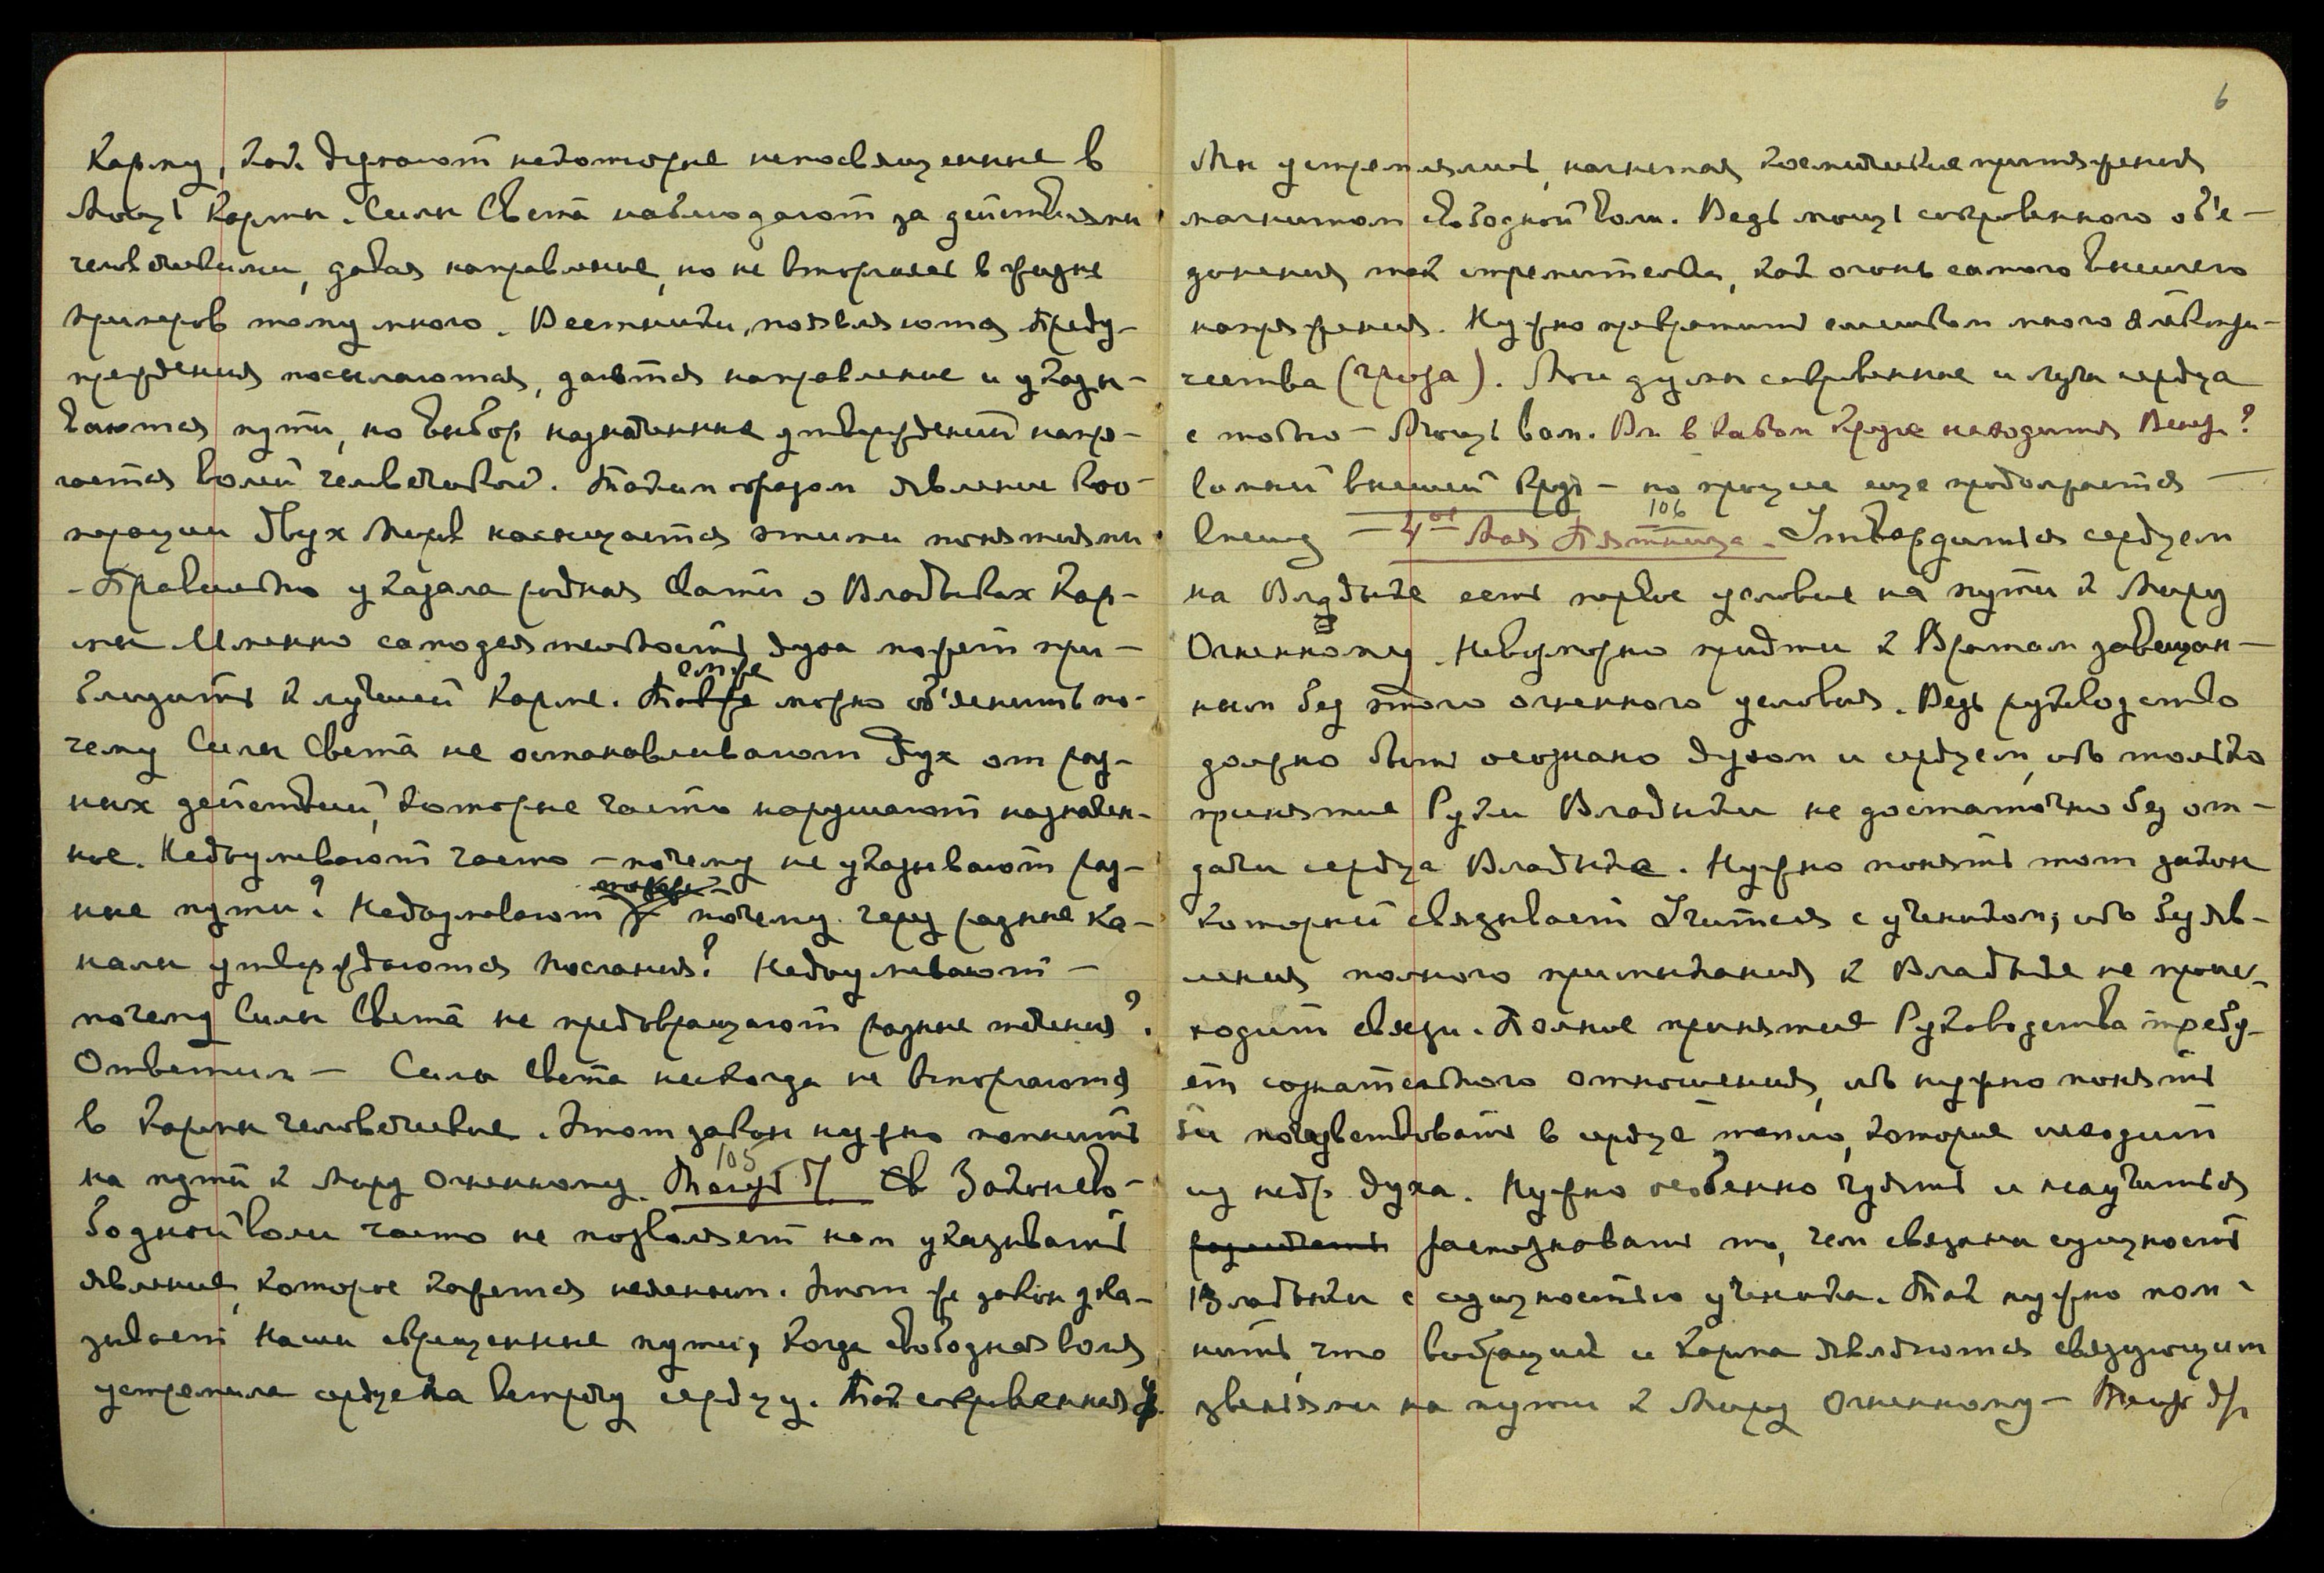 Карму, как думают некоторые непосвященные в
Мощь Кармы. Силы Света наблюдают за действиями
человеческими, давая направление, но не вторгаясь в жизнь
Примеров тому много. Вестники появляются Преду-
преждения посылаются, дается направление и указы-
ваются пути, но выбор назначенные утверждений напря-
гается волей человеческой. Таким образом явление коо-
перации двух Миров насыщается этими понятиями
- Правильно указала родная Свати о Владыках Кар-
мы Именно самодеятельность духа может при-
близить к лучшей Карме.
этим же
Также можно об'яснить по-
чему Силы Света не остановливают Дух от раз-
ных действий, которые часто нарушают назначен-
ное. Недоумевают часто — почему не указывают раз-
ные пути? Недоумевают
также
почему через разные ка-
налы утверждаются послания? Недоумевают —
почему Силы Света не предотвращают разные течения?
Ответим — Силы Света никогда не вторгаются
в Кармы человеческие. Этот закон нужно помнить
на пути к Миру Огненному.
105
Св Закон сво-
бодной воли часто не позволяет нам указывать
явление, которое кажется неясным. Этот же закон ука-
зывает Наши священные пути, когда свободная воля
устремила сердце на встречу сердцу. Так сокровенная
6
Мы устремлялись, нагнетая космические притяжения
магнитом свободной воли. Ведь мощь сокровенного об'е-
динения так стремительна, как огонь самого высшего
напряжения. Нужно прекратить слишком много электри-
чества (гроза). Мои думы сокровенные и лучи сердца
с тобою — Мощь вам. Вы в каком Круге находитесь Венеры?
самый внешний Круг — но процесс еще продолжается —
внешн —
106
4ое Мая Пятница. Утвердиться сердцем
на Владыке есть первое условие на пути к Миру
Огненному. Невозможно придти к Вратам завещан-
ным без этого огненного условия. Ведь руководство
должно быть осознано духом и сердцем, ибо только
принятие Руки Владыки не достаточно без от-
дачи сердца Владыке. Нужно понять тот закон
который связывает Учителя с учеником, ибо без яв-
ления полного примыкания к Владыке не проис-
ходит связи. Полное принятие Руководства требу-
ет сознательного отношения, ибо нужно понять
и почувствовать в сердце тепло, которое исходит
из недр духа. Нужно особенно чуять и научиться
различать распознавать то, чем связана сущность
Владыки с сущностью ученика. Так нужно пом-
нить, что вибрации и карма являются связующими
звеньями на пути к Миру Огненному —